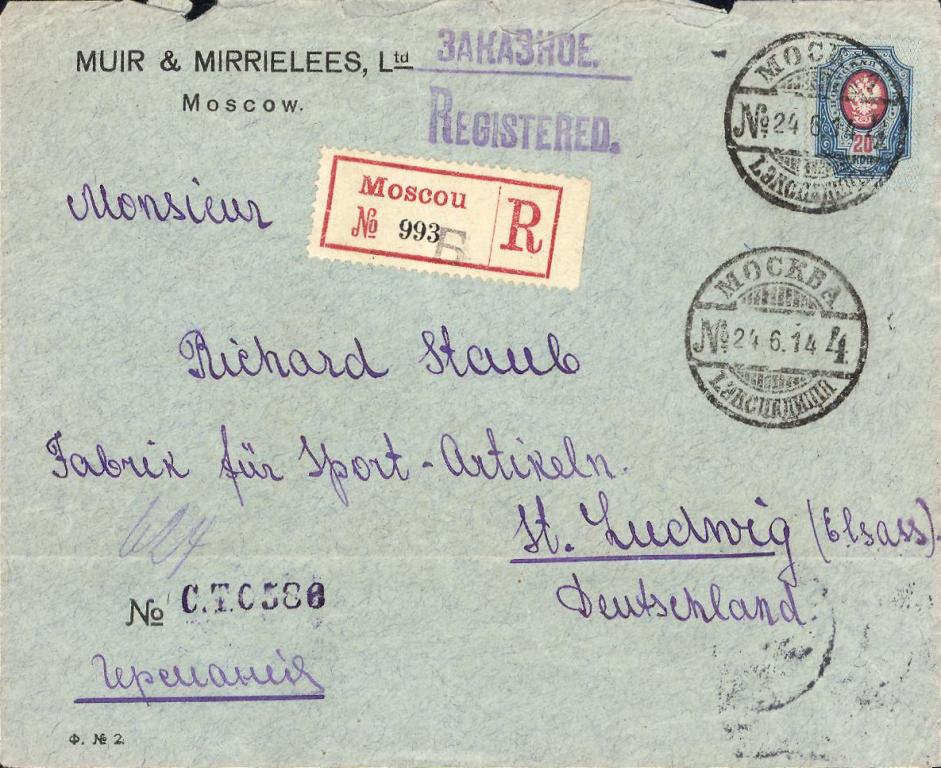 MUIR & MIRRIELEES, Ltd
Moscow.
ЗАКАЗНОЕ.
REGISTERED.
МОСК
№ 24 6
1.ЭКСПЕДИЦІЯ
20
КОП
Moscou
№ 993 Б
R
Monsieur
МОСКВА
№ 24.6.14 4
1.ЭКСПЕДИЦІЯ
Richard Staub
Fabrik für Sport-Artikeln.
624
St. Ludwig (Elsass).
Deutschland.
№ C.T.0586
Германія
Ф. № 2.